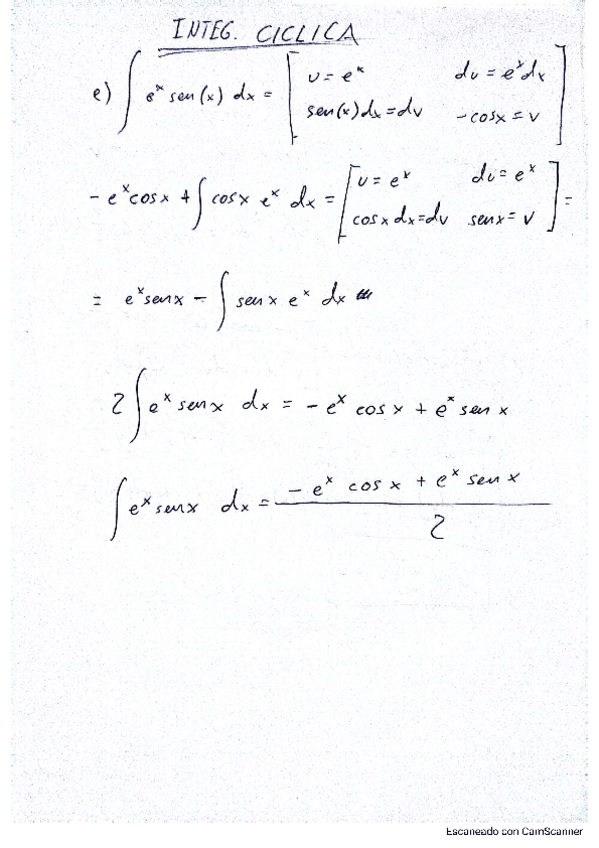 INTEG. CICLICA
e) ∫ eˣ sen(x) dx = [ u = eˣ du = eˣdx
sen(x)dx = dv -cosx = v ]
- eˣcosx + ∫ cosx eˣ dx = [ u = eˣ du = eˣ
cosx dx = dv senx = v ] =
= eˣsenx - ∫ senx eˣ dx
2 ∫ eˣ senx dx = - eˣ cosx + eˣ senx
∫ eˣ senx dx = - eˣ cosx + eˣ senx
2
Escaneado con CamScanner